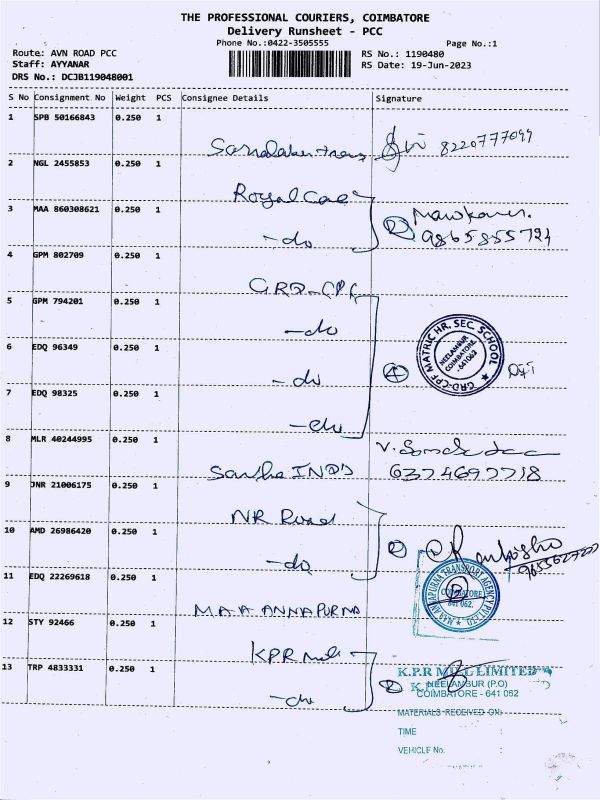 THE PROFESSIONAL COURIERS, COIMBATORE
Delivery Runsheet - PCC
Phone No.:0422-3505555
Page No.:1
Route: AVN ROAD PCC
RS No.: 1190480
Staff: AYYANAR
RS Date: 19-Jun-2023
DRS No.: DCJB119048001
S No Consignment No Weight PCS Consignee Details Signature
1 SPB 50166843 0.250 1
8220777099
2 NGL 2455853 0.250 1
Royal Care
3 MAA 860308621 0.250 1
-do
2
9865855724
4 GPM 802709 0.250 1
GRD-CPF
5 GPM 794201 0.250 1
-do
6 EDQ 96349 0.250 1
-do
4
GRD-CPF MATRIC HR. SEC. SCHOOL
NEELAMBUR
COIMBATORE
-641062
7 EDQ 98325 0.250 1
-do
8 MLR 40244995 0.250 1
6374697718
9 JNR 21006175 0.250 1
NR Road
10 AMD 26986420 0.250 1
-do
2
11 EDQ 22269618 0.250 1
MAA ANNAPURNA
MAA ANNAPURNA TRANSPORT AGENCY PVT. LTD.
COIMBATORE
641 062.
12 STY 92466 0.250 1
KPR Mill
13 TRP 4833331 0.250 1
-do
2
K.P.R MILL LIMITED
NEELAMBUR (P.O)
COIMBATORE - 641 062
MATERIALS RECEIVED ON:
TIME :
VEHICLE No. :